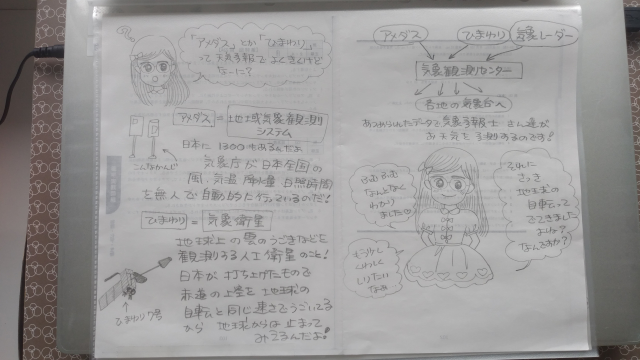 「アメダス」とか「ひまわり」
って天気予報でよくきくけど
なーに?
アメダス = 地域気象観測
システム
日本に1300もあるんだよ
こんなかんじ
気象庁が日本全国の
風、気温、降水量、日照時間
を無人で自動的に行っているのだ!
ひまわり = 気象衛星
地球上の雲のうごきなどを
観測する人工衛星のこと!
日本が打ち上げたもので
赤道の上空を地球の
自転と同じ速さでうごいてる
から 地球からは止まって
みえるんだよ!
ひまわり7号
アメダス
ひまわり
気象レーダー
気象観測センター
各地の気象台へ
あつめられたデータで気象予報士さん達が
お天気を予測するのです!
ふむふむ
なんとなく
わかり
ました
もう少し
くわしく
しりたい
なぁ
それに
さっき
地球の
自転って
でてきました
よね?
なんですか?